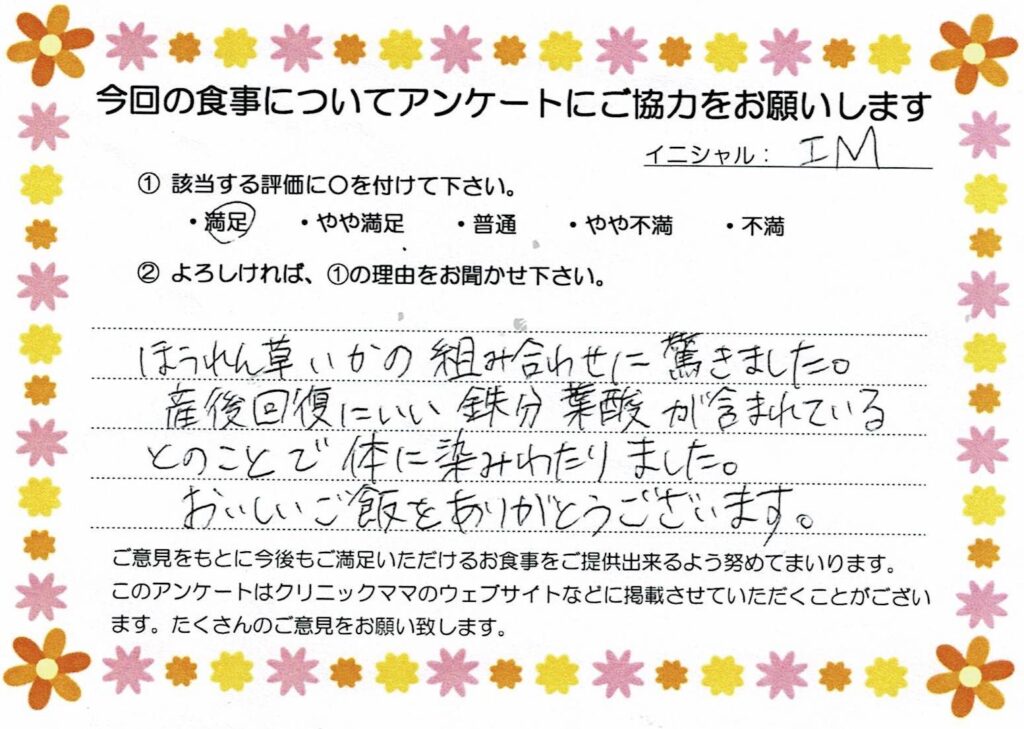 今回の食事についてアンケートにご協力をお願いします
イニシャル： IM
① 該当する評価に〇を付けて下さい。
・満足 ・やや満足 ・普通 ・やや不満 ・不満
② よろしければ、①の理由をお聞かせ下さい。
ほうれん草いかの組み合わせに驚きました。
産後回復にいい鉄分葉酸が含まれている
とのことで体に染みわたりました。
おいしいご飯をありがとうございます。
ご意見をもとに今後もご満足いただけるお食事をご提供出来るよう努めてまいります。
このアンケートはクリニックママのウェブサイトなどに掲載させていただくことがござい
ます。たくさんのご意見をお願い致します。